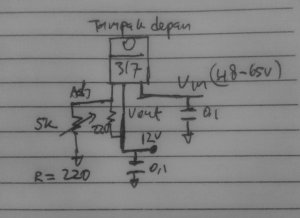 Tampak depan
317
Adj
Vin (48-65V)
5K
220
Vout
0,1
12V
R = 220
0,1